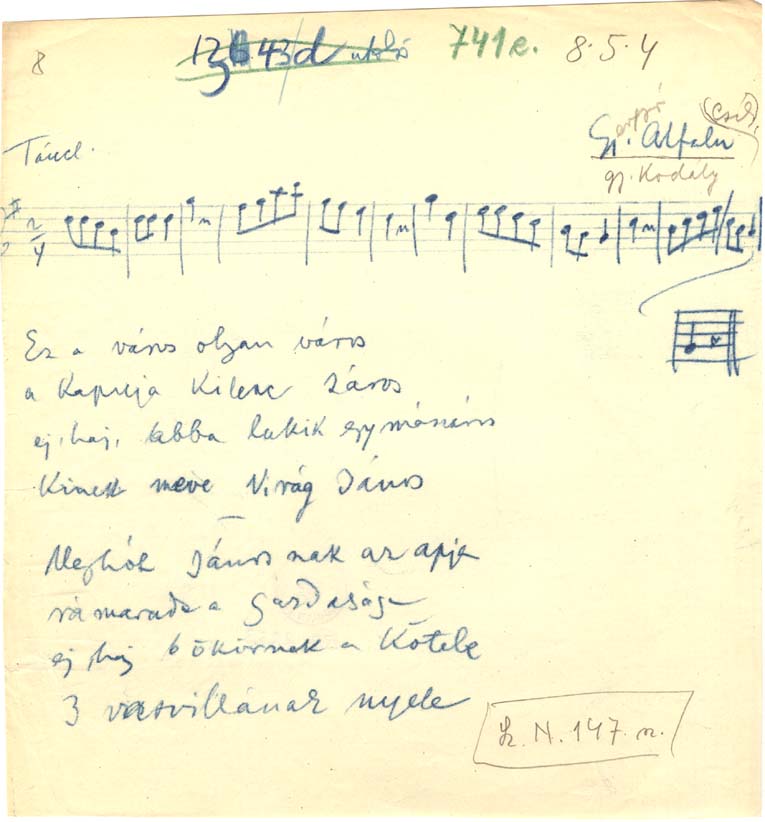 8
741e. 8.5.4
Táncl.
Gy. Alfalu
gy. Kodály
2/4
Ez a város olyan város
a kapuja kilenc záros
ej, haj, abba lakik egy mészáros
Kinek neve Virág János
Meghót Jánosnak az apja
rámarada a gazdasága
ej, haj 6 ökörnek a kötele
3 vasvillának nyele
Sz. N. 147. sz.